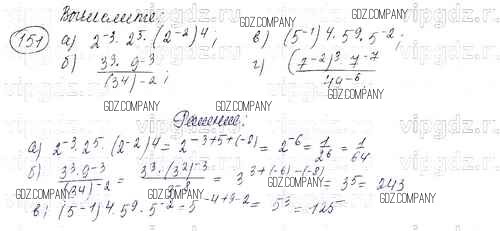 Вычислите:
151 а) 2^{-3} · 2^5 · (2^{-2})^4; в) (5^{-1})^4 · 5^9 · 5^{-2};
б) \frac{3^3 · 9^{-3}}{(3^4)^{-2}}; г) \frac{(7^{-2})^3 · 7^{-7}}{}
Решение:
а) 2^{-3} · 2^5 · (2^{-2})^4 = 2^{-3+5+(-8)} = 2^{-6} = \frac{1}{2^6} = \frac{1}{64}
б) \frac{3^3 · 9^{-3}}{(3^4)^{-2}} = \frac{3^3 · (3^2)^{-3}}{3^{-8}} = 3^{3+(-6)-(-8)} = 3^5 = 243
в) (5^{-1})^4 · 5^9 · 5^{-2} = 5^{-4+9-2} = 5^3 = 125